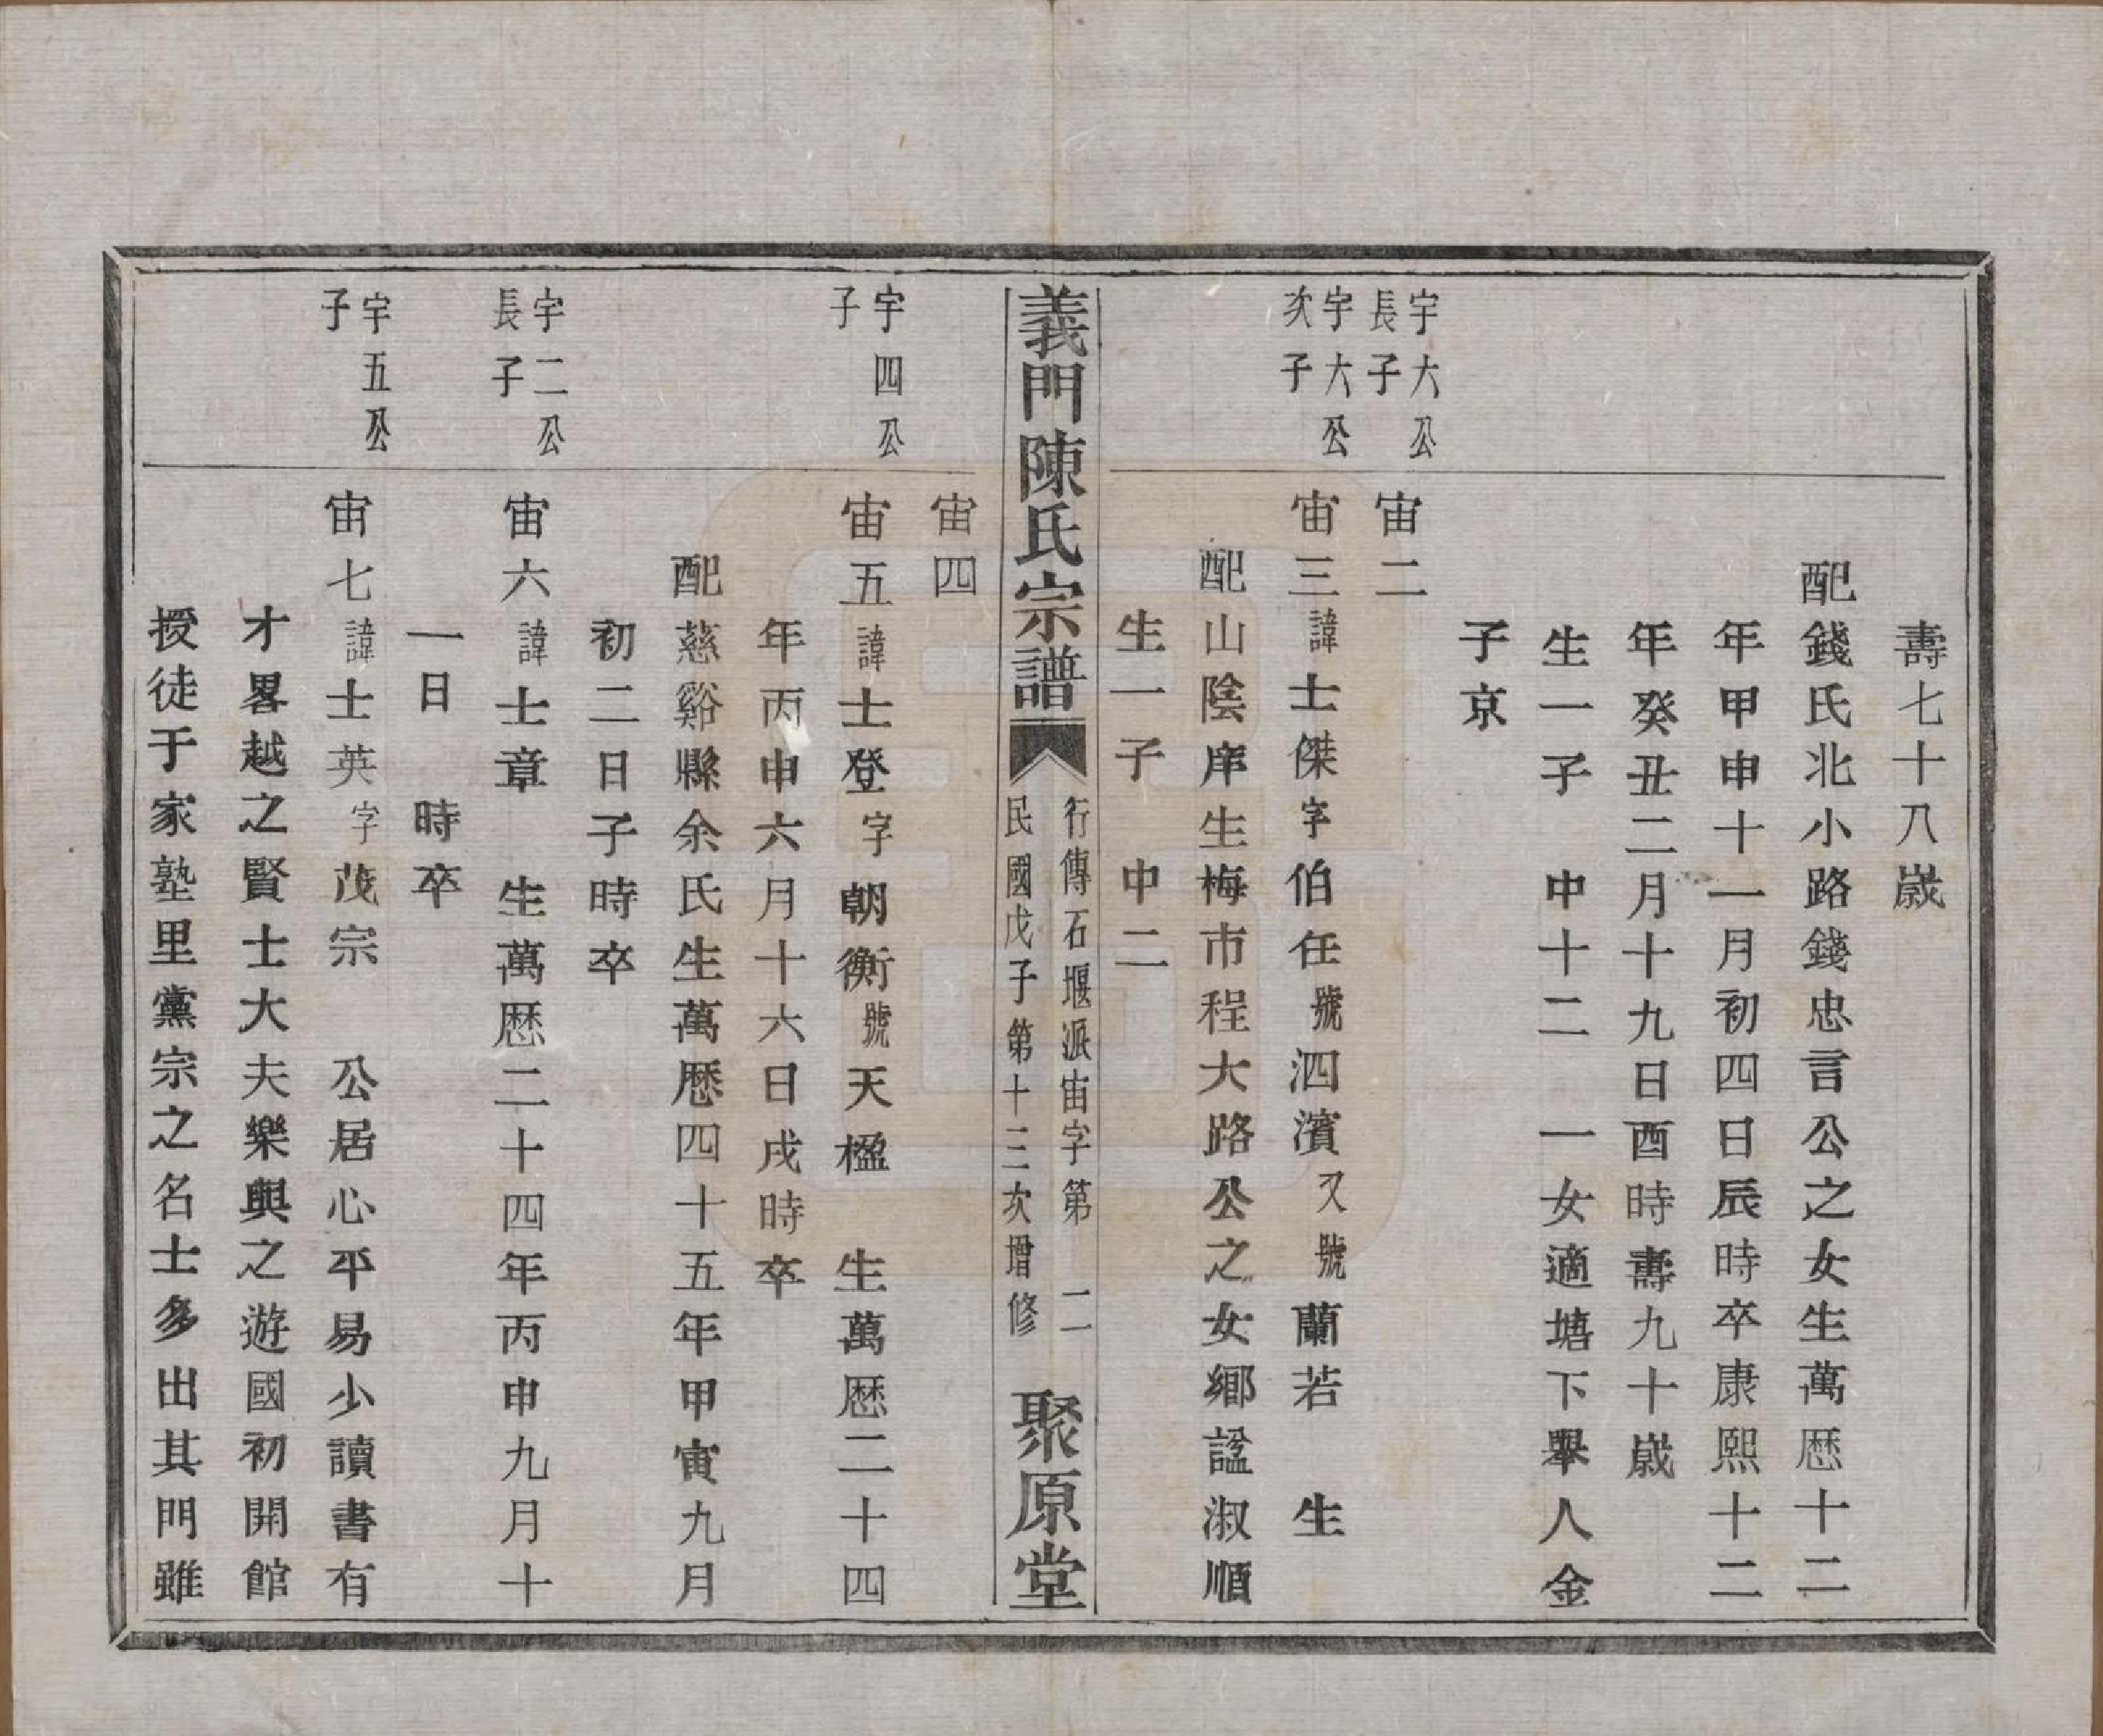 壽七十八歲
配錢氏北小路錢忠言公之女生萬厯十二
年甲申十一月初四日辰時卒康熙十二
年癸丑二月十九日酉時壽九十歲
生一子　中十二　一女適塘下舉人金
子京
宇六公
長子
宙二
宇六公
次子
宙三諱士傑字伯任號泗濱又號蘭若　生
配山陰庠生梅市程大路公之女鄉諡淑順
生一子　中二
義門陳氏宗譜
行傳石堰派宙字第　二
民國戊子第十三次增修
聚原堂
宙四
宇四公
子
宙五諱士登字朝衡號天楹　生萬厯二十四
年丙申六月十六日戌時卒
配慈谿縣余氏生萬厯四十五年甲寅九月
初二日子時卒
宇二公
長子
宙六諱士章　生萬厯二十四年丙申九月十
一日　時卒
宇五公
子
宙七諱士英字茂宗　公居心平易少讀書有
才畧越之賢士大夫樂與之遊國初開館
授徒于家塾里黨宗之名士多出其門雖